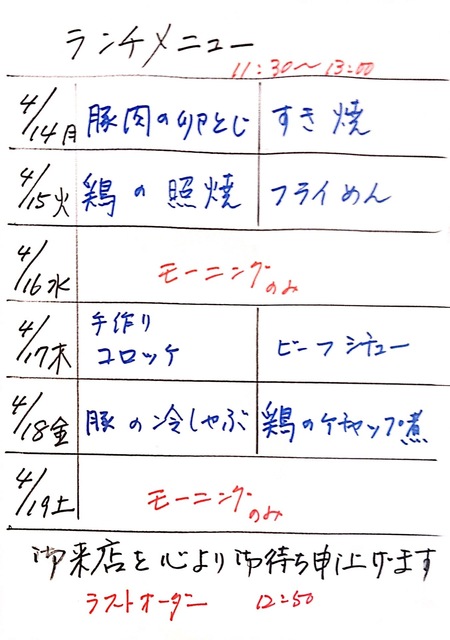 ランチメニュー
11:30～13:00
4/14月 豚肉の卵とじ すき焼
4/15火 鶏の照焼 フライめん
4/16水 モーニングのみ
4/17木 手作りコロッケ ビーフシチュー
4/18金 豚の冷しゃぶ 鶏のケチャップ煮
4/19土 モーニングのみ
御来店を心より御待ち申上げます
ラストオーダー 12:50